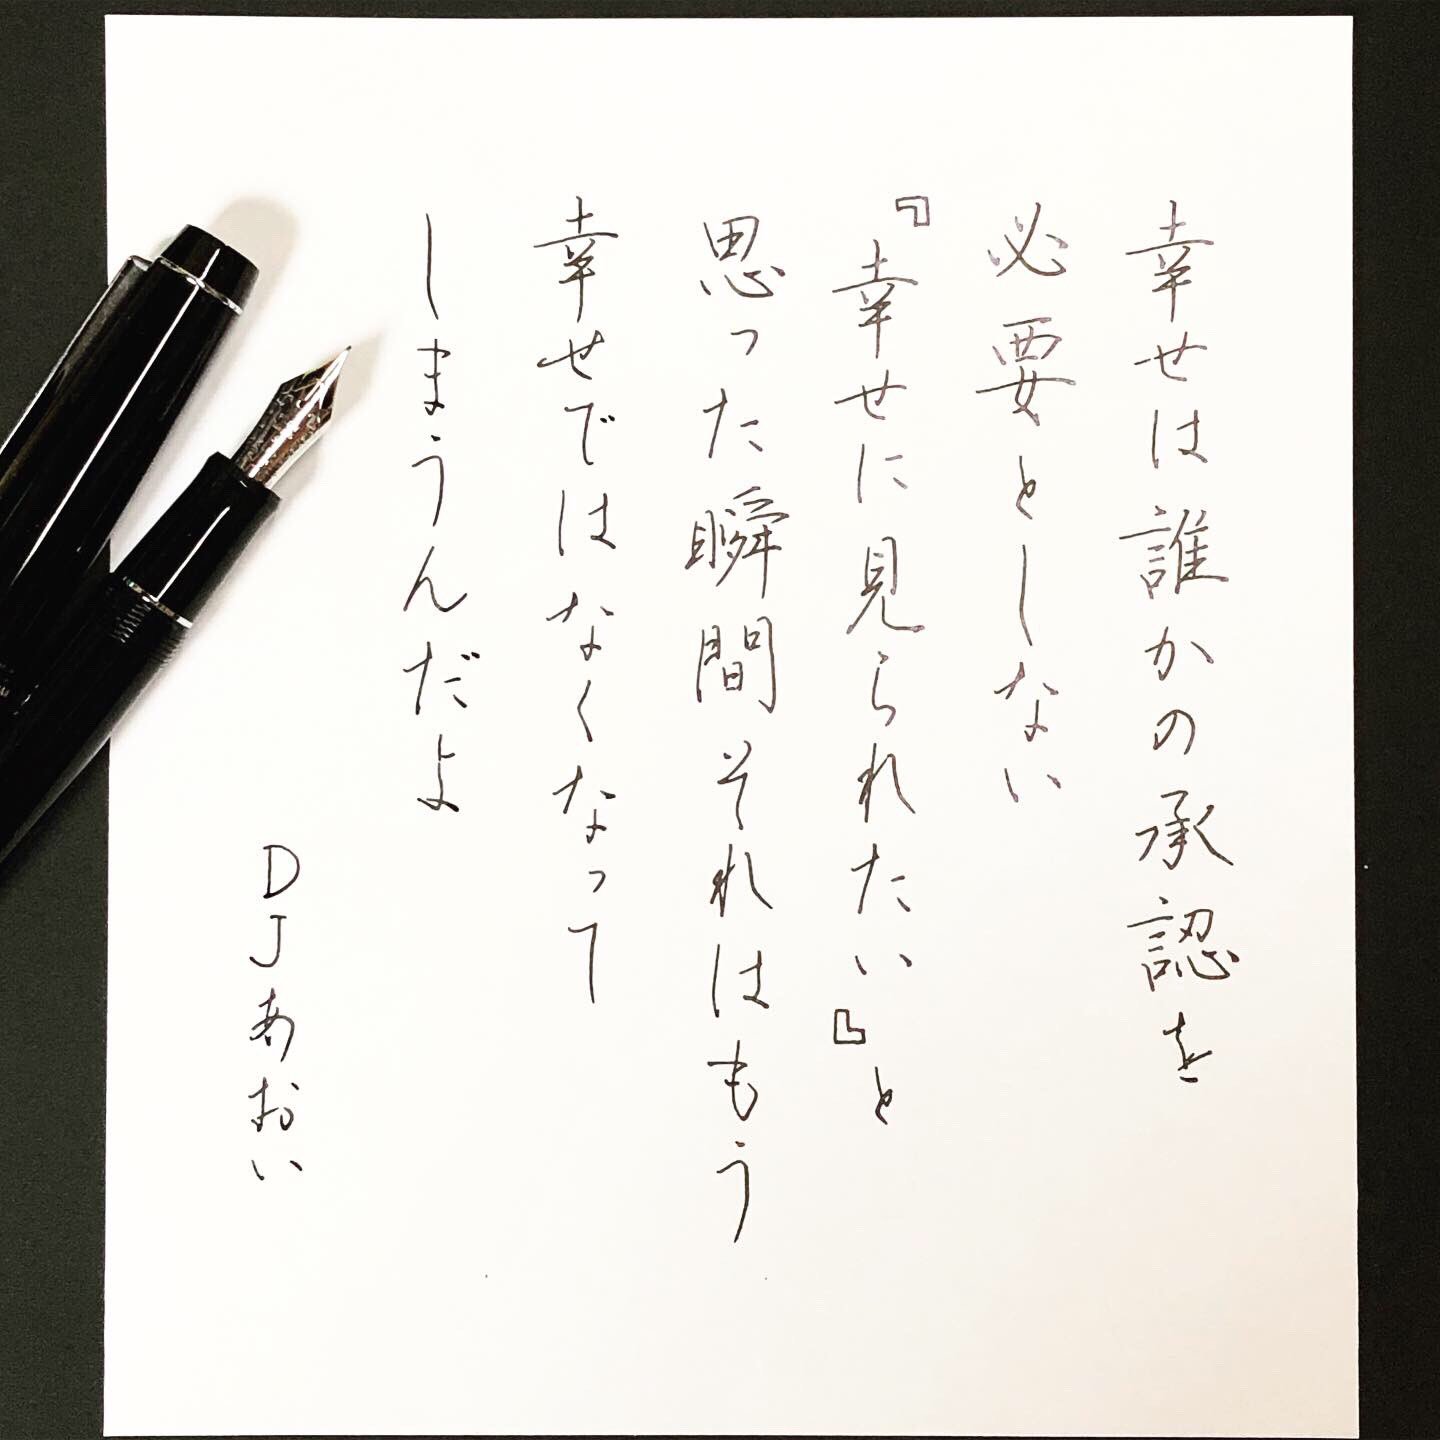 幸せは誰かの承認を
必要としない
『幸せに見られたい』と
思った瞬間それはもう
幸せではなくなって
しまうんだよ
DJあおい